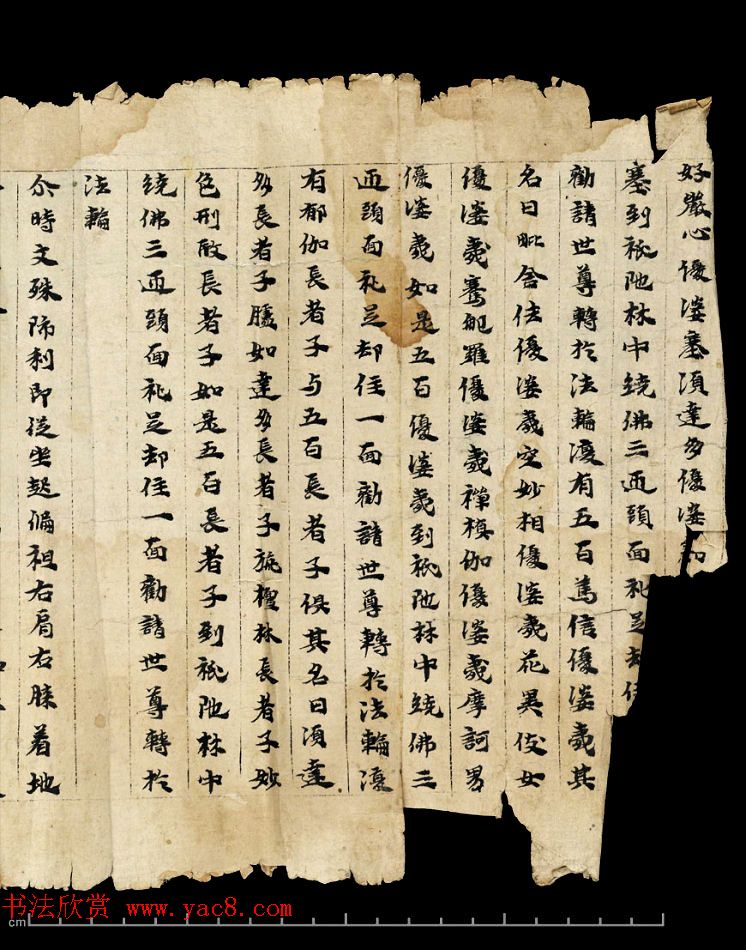 好嚴心優婆塞湏達多優婆
塞到祇陁林中繞佛三迊頭面礼足却住
勸請世尊轉於法輪湏有五百蔫信優婆羛其
名曰毗舍佉優婆羛空妙相優婆羛花異伎女
優婆羛騫馳羅優婆羛禪模伽優婆羛摩訶男
優婆羛如是五百優婆羛到祇陁林中繞佛三
迊頭面礼足却住一面勸請世尊轉於法輪湏
有郁伽長者子与五百長者子俱其名曰湏達
多長者子勝如達多長者子旃檀林長者子妙
色形㪚長者子如是五百長者子到祇陁林中
繞佛三迊頭面礼足却住一面勸請世尊轉於
法輪
尒時文殊師利即從坐起偏袒右肩右膝着地
书法欣赏 www.yac8.com
cm